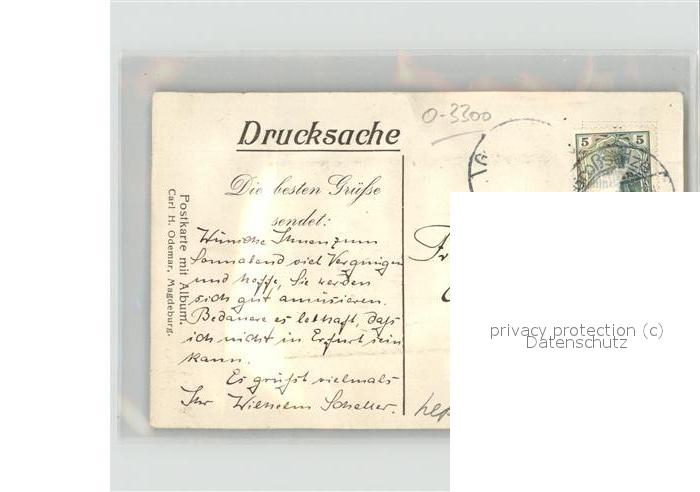 O-3300
Drucksache
5 5
Die besten Grüße
sendet:
Wünsche Ihnen zum
Sonnabend viel Vergnügen
und hoffe, Sie werden
sich gut amüsieren.
Bedaure es lebhaft, daß
ich nicht in Erfurt sein
kann.
Es grüßt vielmals
Ihr Wilhelm Scheller.
Postkarte mit Album.
Carl H. Odemar, Magdeburg.
Fr
privacy protection (c)
Datenschutz